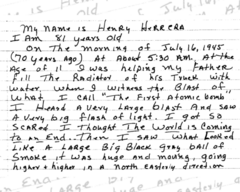 My name is Henry Herrera
I Am 81 years old
On The morning of July 16, 1945
(70 years Ago) At About 5:30 AM. At the
Age of 11 I was helping my Father
Fill The Radiator of his Truck with
water, when I witness The Blast of
what I call "The First Atomic bomb"
I Heard A very large Blast And saw
A very big flash of light. I got so
scared I Thought The World is Coming
to an End. Then I saw what Looked
Like A Large Big Black Gray ball of
smoke it was huge and moving, going
higher & higher in A North easterly direction